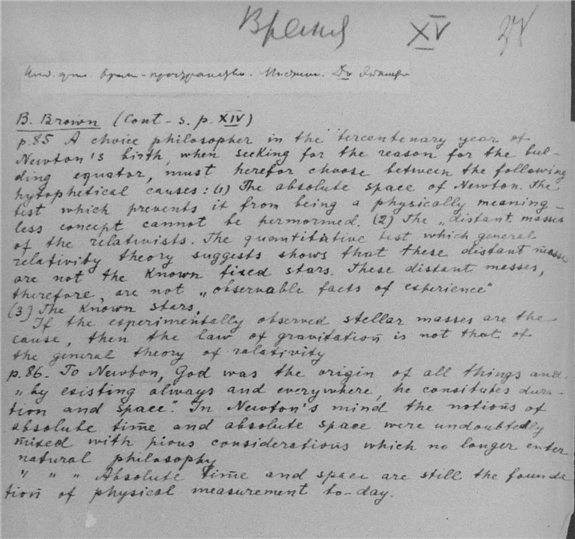 Время XV
B. Brown (Cont - s. p. XIV)
p.85 A choice philosopher in the tercentenary year of
Newton's birth, when seeking for the reason for the bul-
ding equator, must herefor choose between the following
hytophetical causes: (1) The absolute space of Newton. The
test which prevents it from being a physically meaning-
less concept cannot be permormed. (2) The „distant masses
of the relativists. The quantitative test which general
relativity theory suggests shows that these distant masses
are not the known fixed stars. These distant masses,
therefore, are not „observable facts of experience"
(3) The Known stars,
If the experimentally observed stellar masses are the
cause, then the law of gravitation is not that of
the general theory of ralativity
p.86. To Newton, God was the origin of all things and
„by existing always and everywhere, he consitutes dura-
tion and space". In Newton's mind the notions of
absolute time and absolute space were undoubtedly
mixed with pious considerations which no longer enter
natural philosophy
" " " Absolute time and space are still the founda
tion of physical measurement to-day.